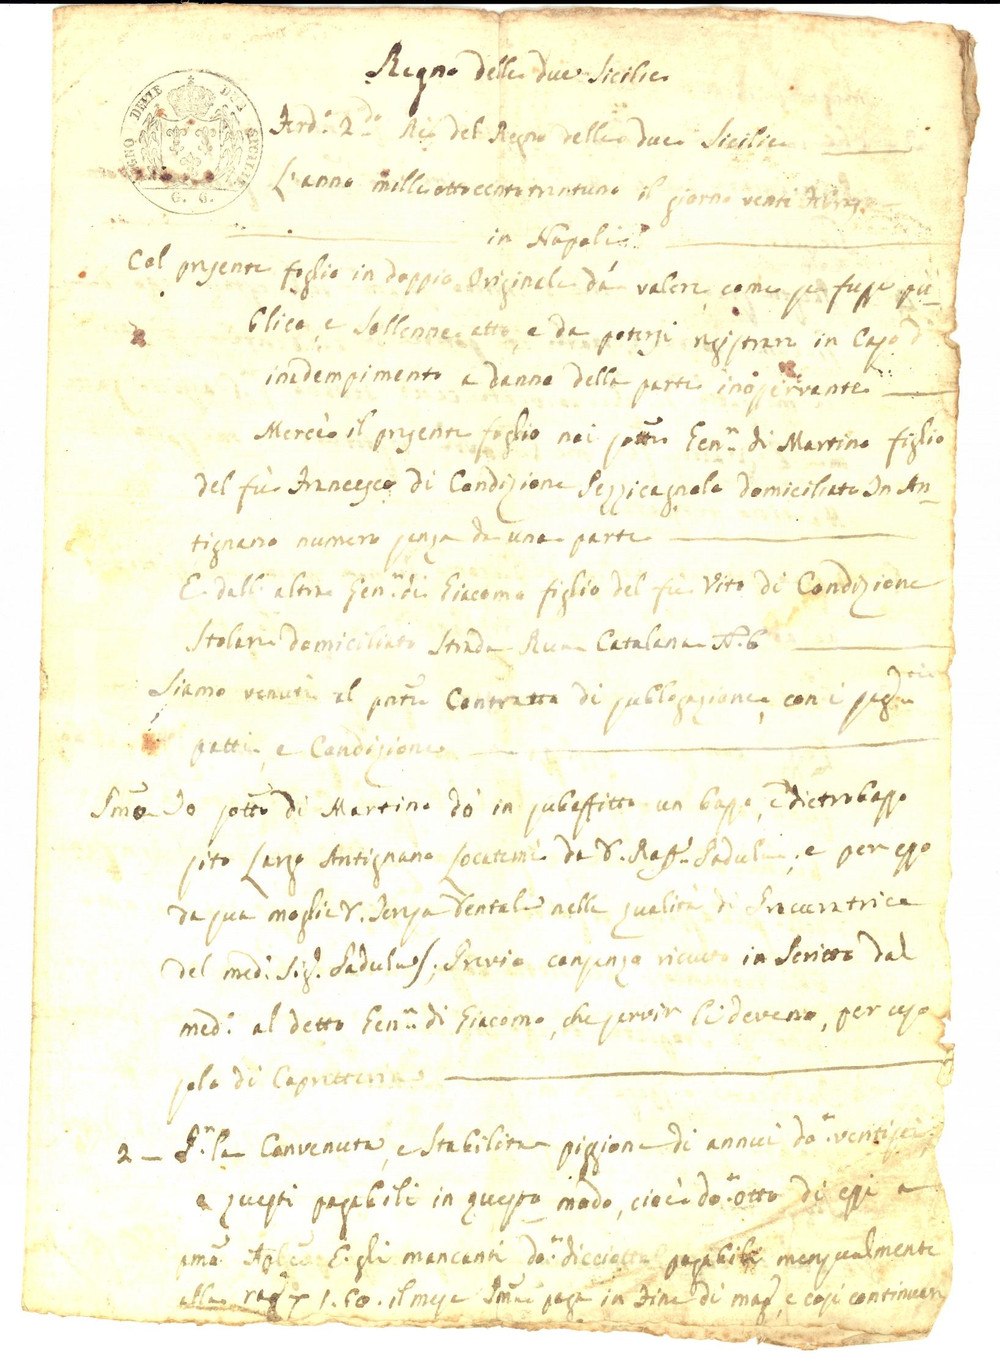 Regno delle due Sicilie
REGNO DELLE DUE SICILIE
G. G.
Ferd.º 2.do Rè del Regno delle due Sicilie
L'anno mille ottocentotrentuno il giorno venti
in Napoli
Col presente foglio in doppio Originale da valere come se fusse pu=
blico, e sollenne atto, e da potersi registrare in Caso d'
inadempimento a danno della parte inosservante
Mercè il presente foglio noi sott.i Genn.o di Martino figlio
del fù Francesco di Condizione Pizzicagnolo domiciliato In An=
tignano numero senza da una parte
E dall'altra Genn.o di Giacomo figlio del fù Vito di Condizione
domiciliato Strada Rua Catalana N. 6
Siamo venuti al pnte Contratto di sullogazione, con i seg.ti
patti, e Condizione
Pmo Io sott.o di Martino dò in subaffitto un basso, e dietrobasso
sito Largo Antignano Locatemi da D. Raff.e Padula, e per esso
da sua moglie D. Teresa nella qualità di Procuratrice
del med.o Sig.r Padula; Previo consenso ricevuto in Scritto dal
med.o al detto Genn.o di Giacomo, che servir li devono, per uso
solo di
2 — P. la Convenuta, e Stabilita piggione di annui do.ti ventisei,
e questi pagabili in questo modo, cioè do.ti otto di essi a
E gli mancanti do.ti dicciotto pagabili mensualmente
alla rag.e 1.60. il mese Pma paga in Fine di mag.o, e così continuare